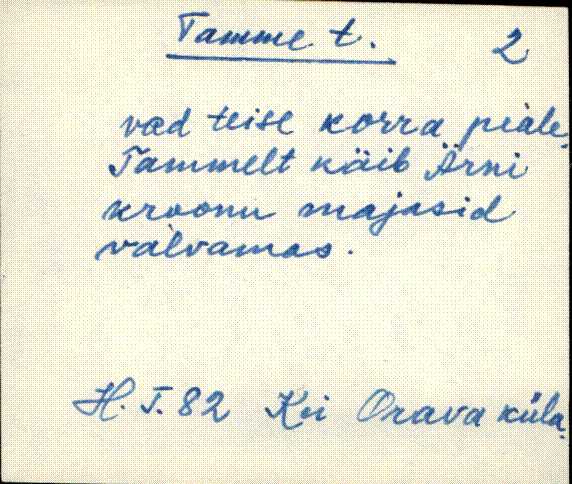 Tamme t. 2
vad teise korra peale.
Tammelt käib Ärni
kroonu majasid
valvamas.
H. T. 82 Kei Orava küla.